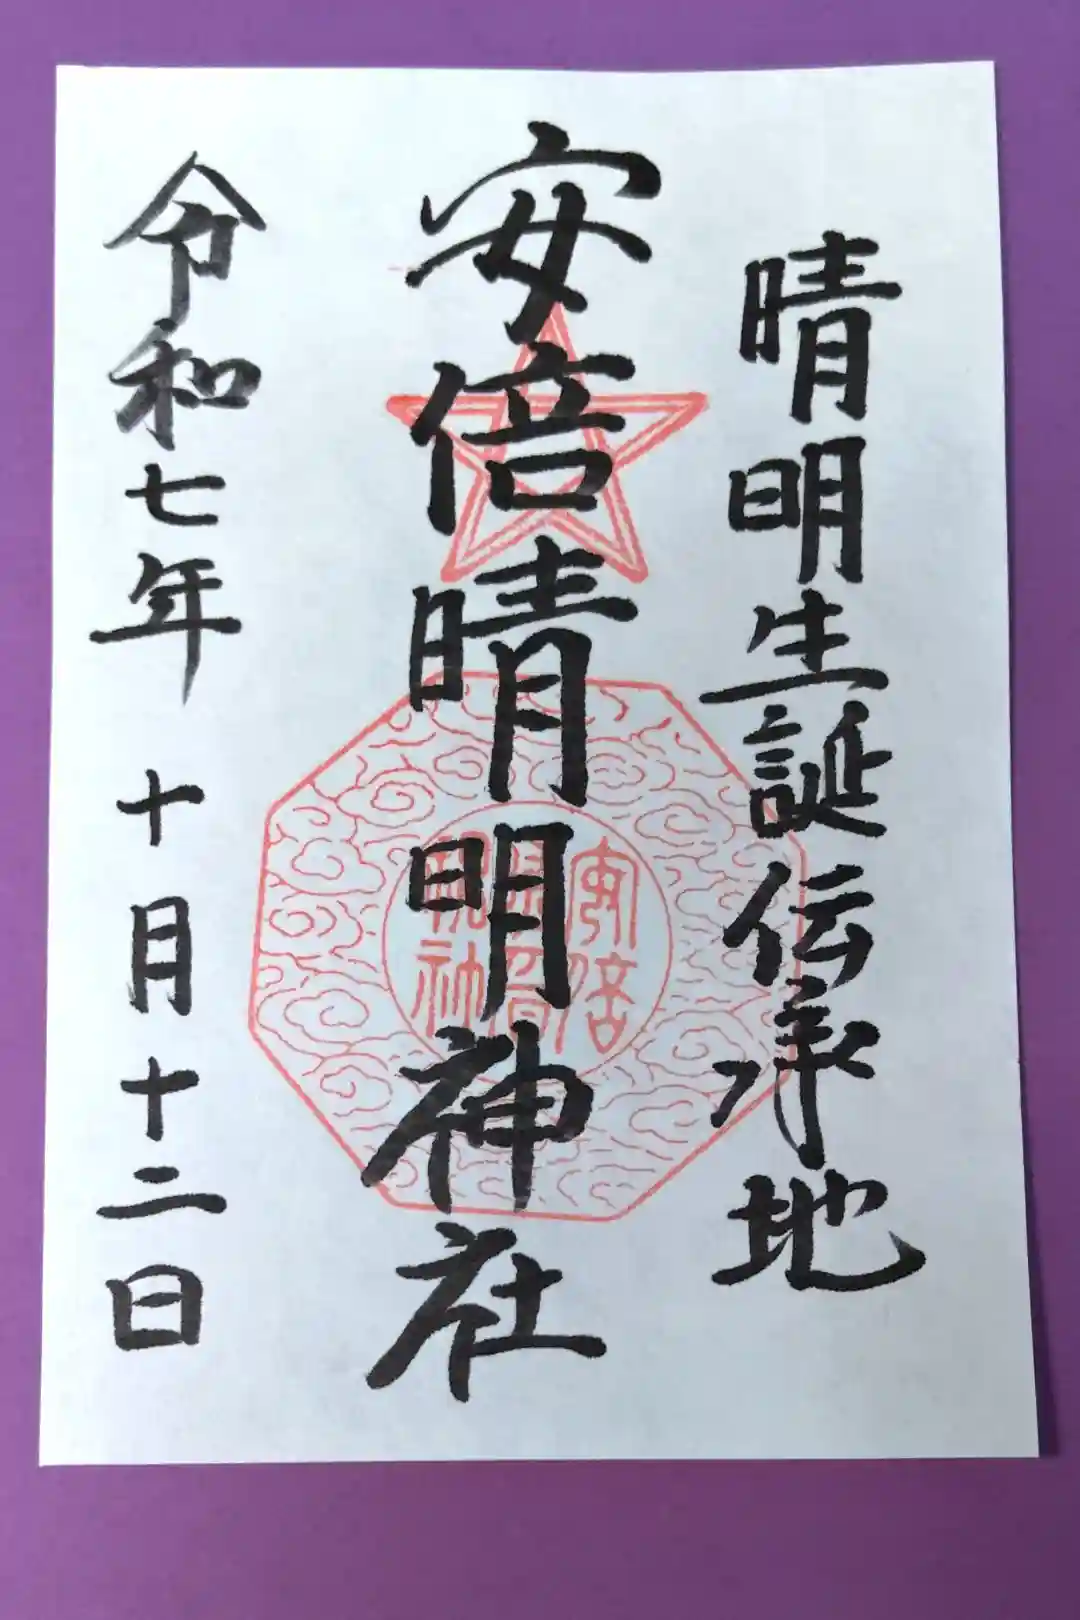 晴明生誕伝承地
安倍晴明神社
令和七年 十月十二日
安倍
晴明
神社